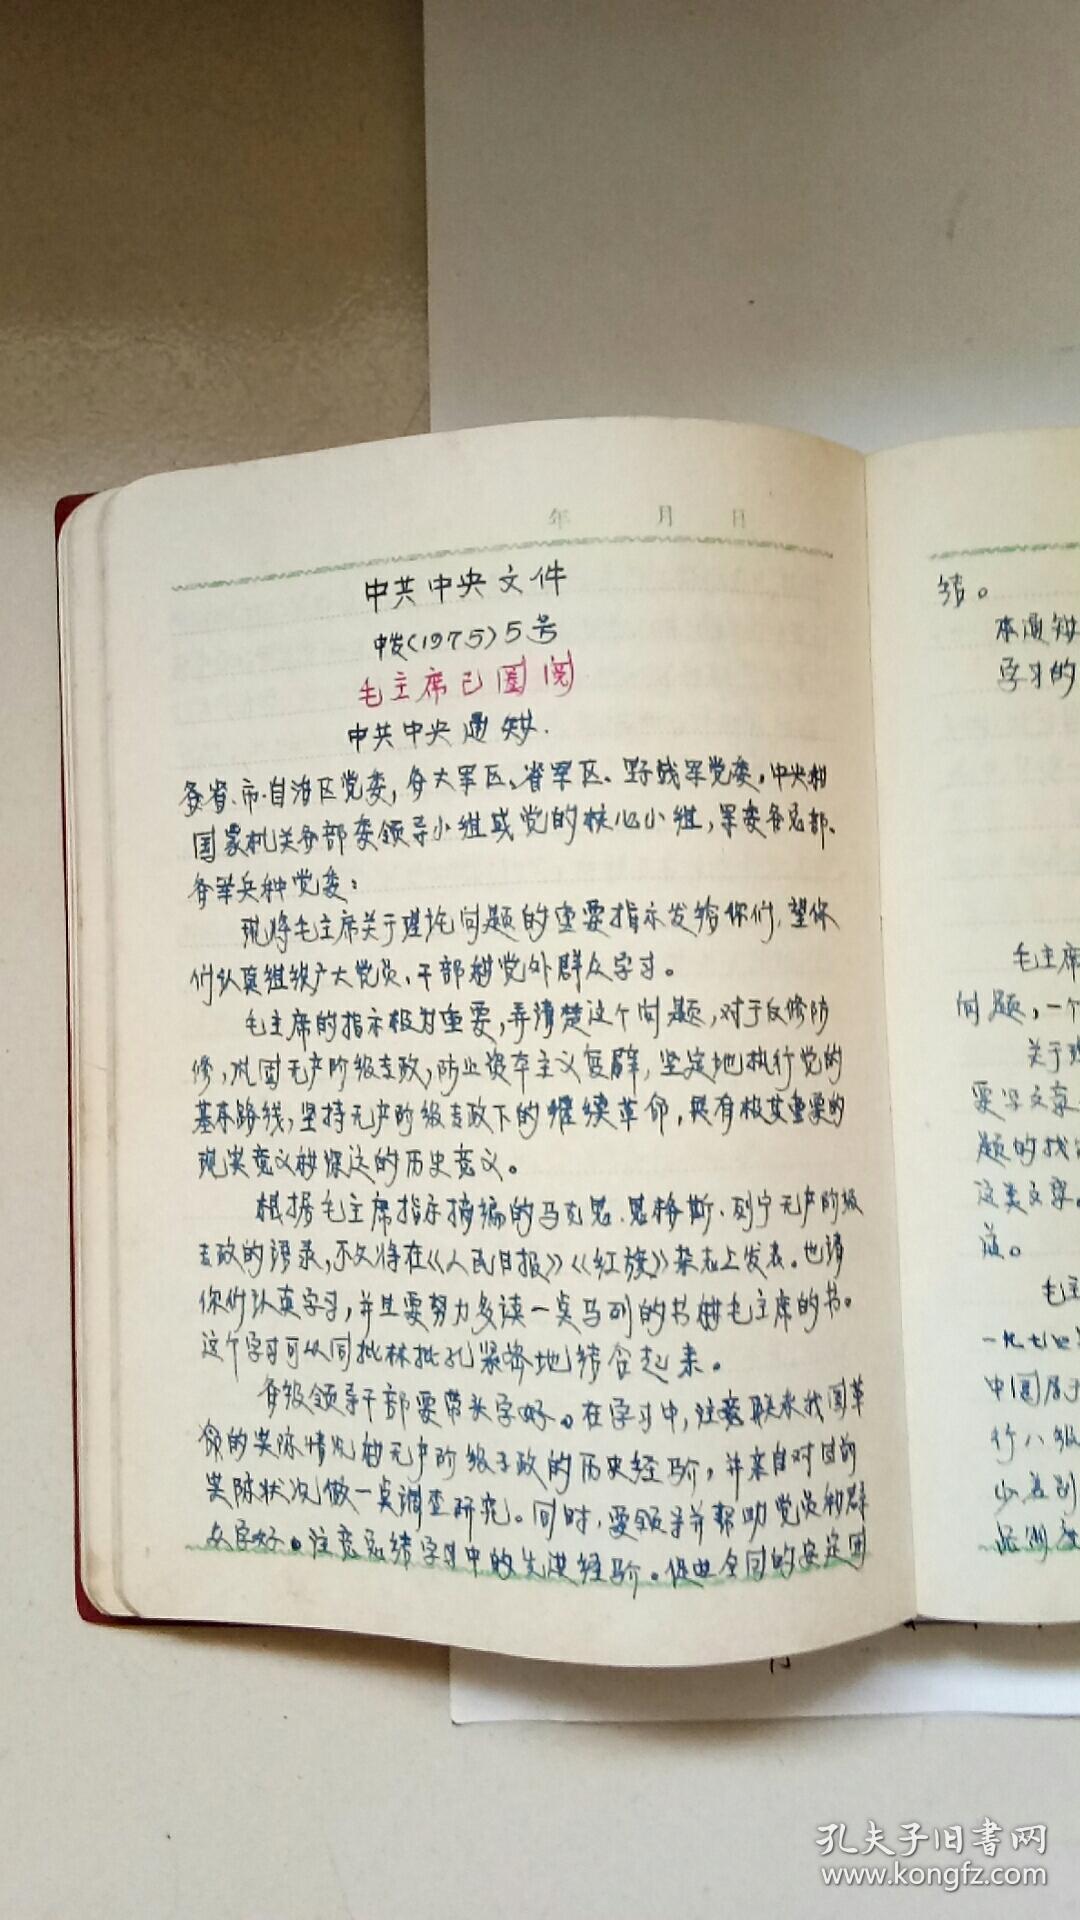 年 月 日
中共中央文件
中发(1975)5号
毛主席已圈阅
中共中央通知.
各省、市、自治区党委,各大军区、省军区、野战军党委,中央和
国家机关各部委领导小组或党的核心小组,军委各总部、
各军兵种党委:
现将毛主席关于理论问题的重要指示发给你们,望你
们认真组织广大党员、干部和党外群众学习。
毛主席的指示极为重要,弄清楚这个问题,对于反修防
修,巩固无产阶级专政,防止资本主义复辟,坚定地执行党的
基本路线,坚持无产阶级专政下的继续革命,具有极其重要的
现实意义和深远的历史意义。
根据毛主席指示摘编的马克思、恩格斯、列宁无产阶级
专政的语录,不久将在《人民日报》《红旗》杂志上发表。也请
你们认真学习,并且要努力多读一点马列的书和毛主席的书。
这个学习可以同批林批孔紧密地结合起来。
各级领导干部要带头学好。在学习中,注意联系我国革
命的实际情况和无产阶级专政的历史经验,并亲自对目前
实际状况做一点调查研究。同时,要领导并帮助党员和群
众学好。注意总结学习中的先进经验。促进全国的安定团
结。
本通知
学习的
毛主席
问题,一个
关于理
要写文章
题的找
这类文章
道。
毛主
一九七四
中国属于
行八级
少差别
孔夫子旧书网
www.kongfz.com